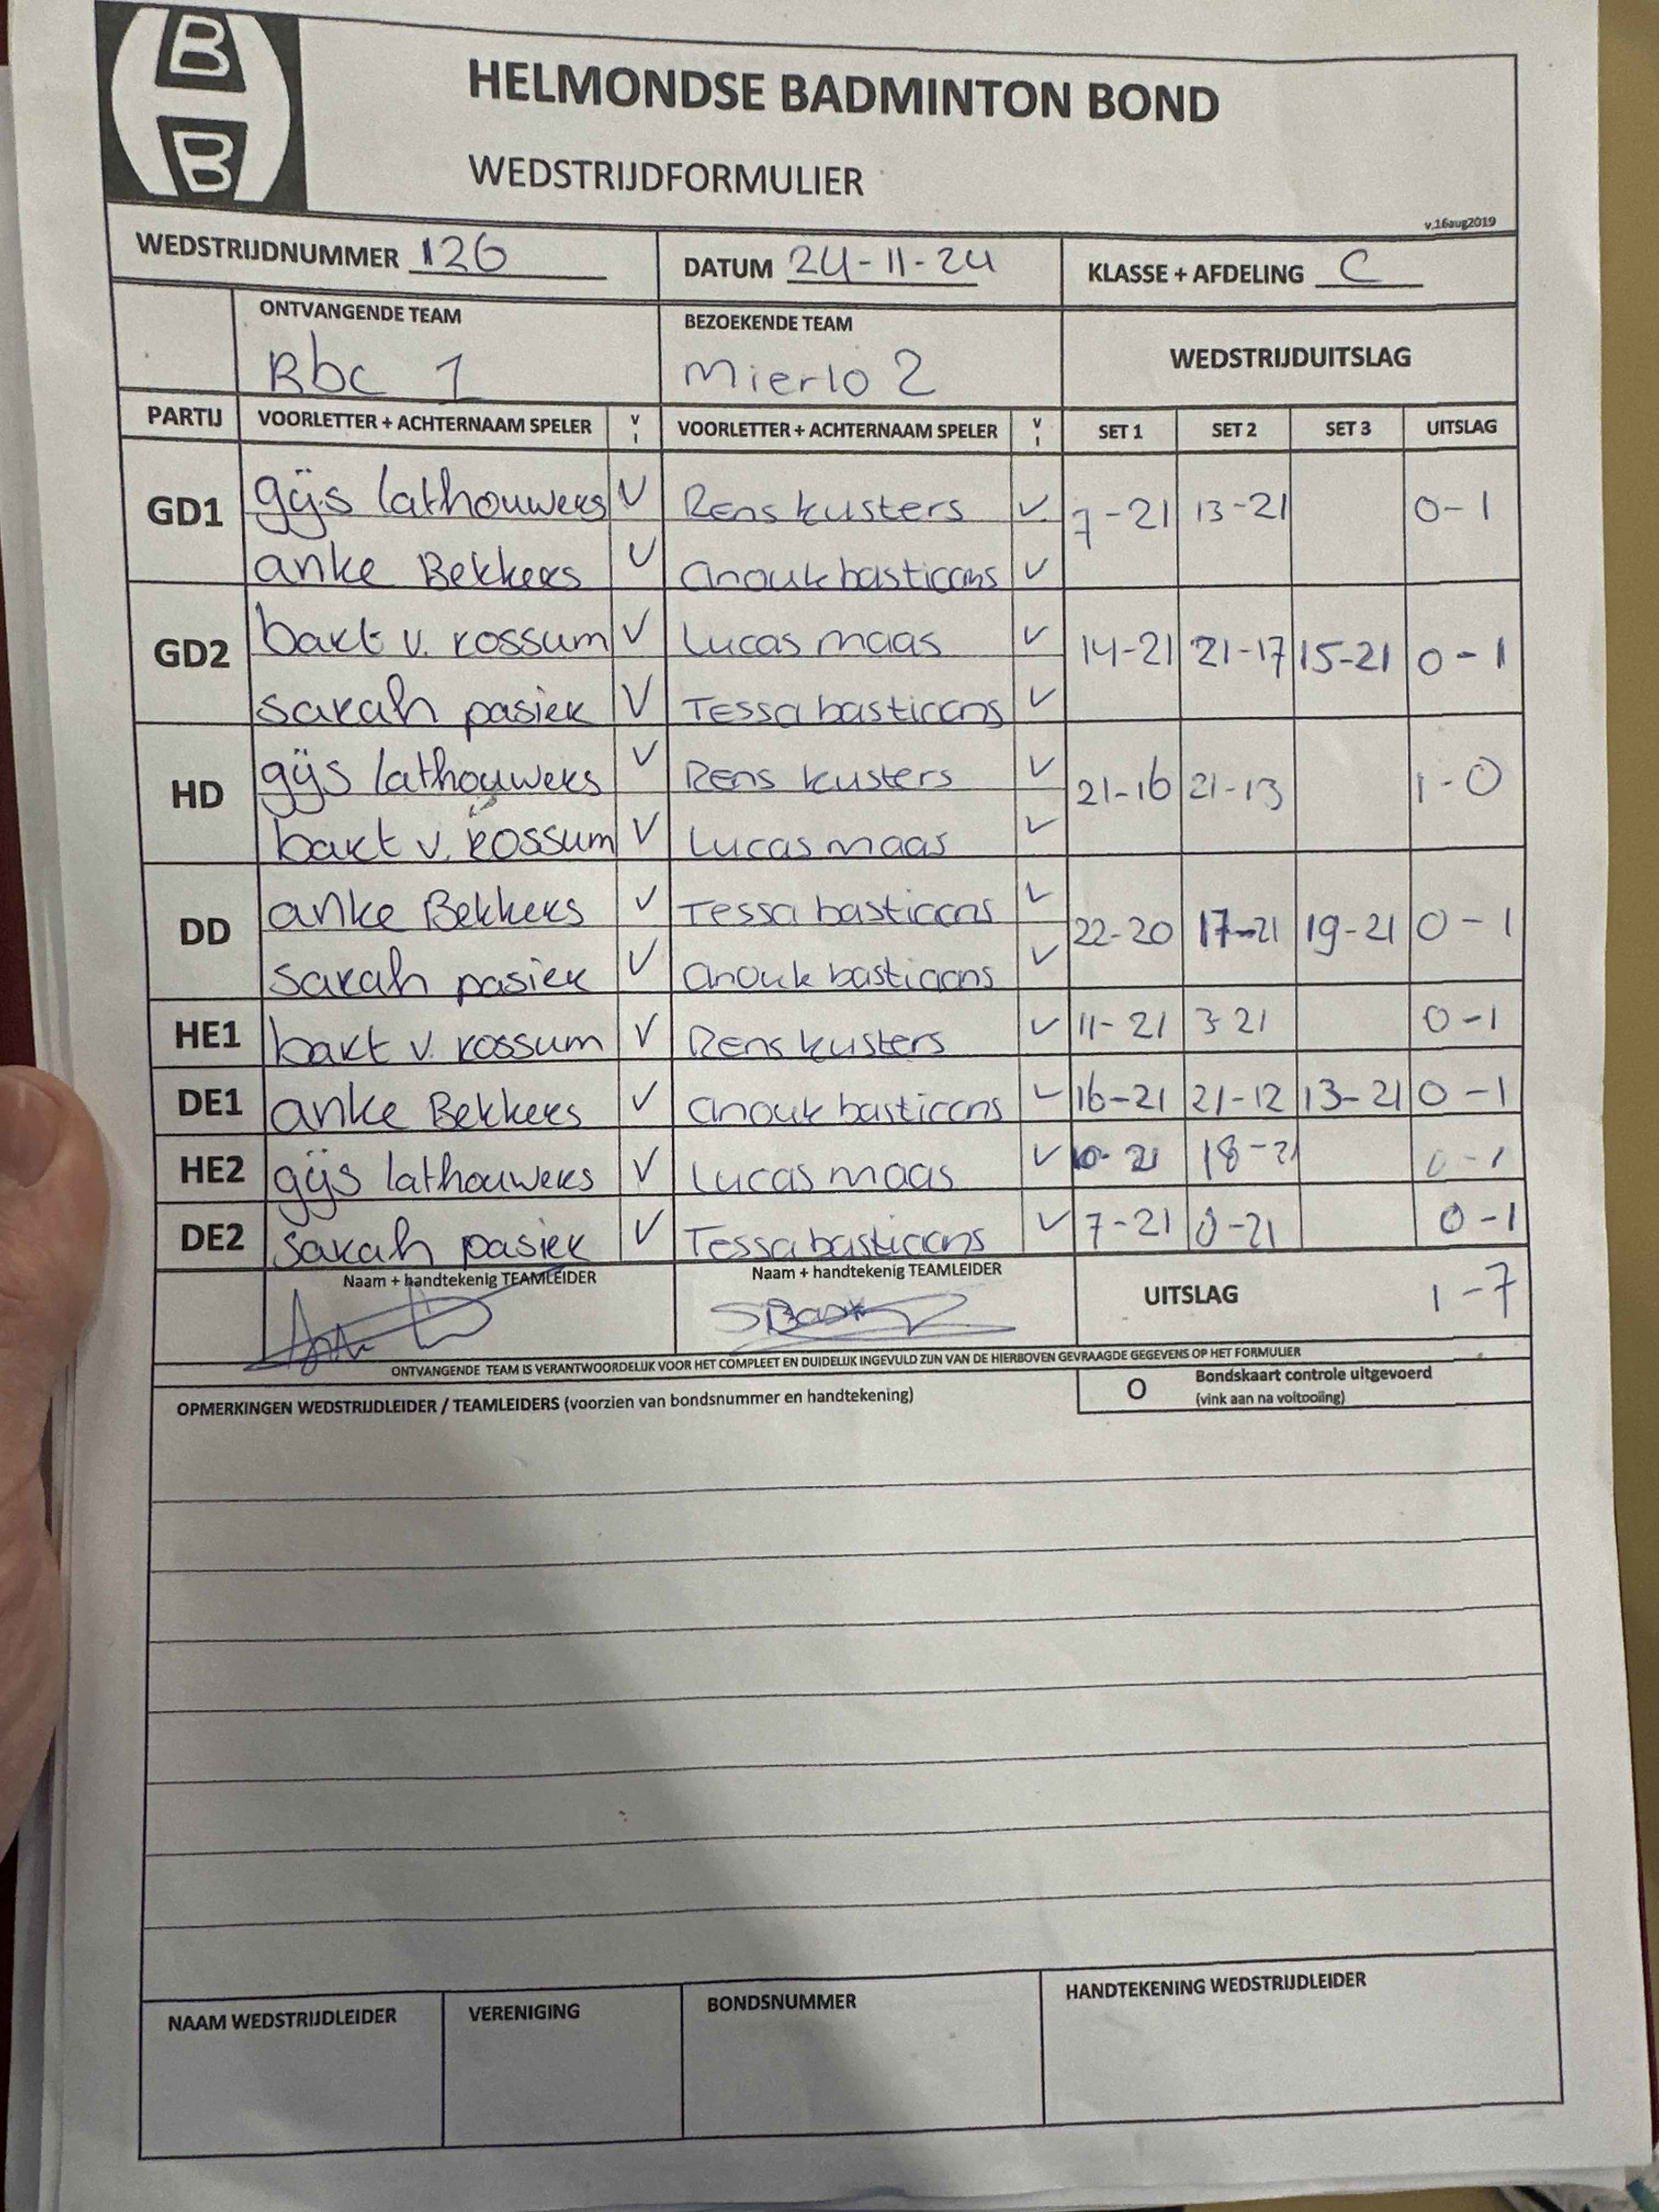 B
B
HELMONDSE BADMINTON BOND
WEDSTRIJDFORMULIER
v.16aug2019
WEDSTRIJDNUMMER 126 DATUM 24-11-24 KLASSE + AFDELING C
ONTVANGENDE TEAM BEZOEKENDE TEAM
Rbc 1 Mierlo 2 WEDSTRIJDUITSLAG
PARTIJ VOORLETTER + ACHTERNAAM SPELER V I VOORLETTER + ACHTERNAAM SPELER V I SET 1 SET 2 SET 3 UITSLAG
GD1 gijs lathouwers V Rens kusters V 7-21 13-21 0-1
anke Bekkers V anouk bastiaans V
GD2 bart v. rossum V Lucas maas V 14-21 21-17 15-21 0-1
sarah pasier V Tessa bastiaans V
HD gijs lathouwers V Rens kusters V 21-16 21-13 1-0
bart v. rossum V Lucas maas V
DD anke Bekkers V Tessa bastiaans V 22-20 17-21 19-21 0-1
sarah pasier V anouk bastiaans V
HE1 bart v. rossum V Rens kusters V 11-21 3-21 0-1
DE1 anke Bekkers V anouk bastiaans V 16-21 21-12 13-21 0-1
HE2 gijs lathouwers V Lucas maas V 10-21 18-21 0-1
DE2 sarah pasier V Tessa bastiaans V 7-21 8-21 0-1
Naam + handtekenig TEAMLEIDER Naam + handtekenig TEAMLEIDER
UITSLAG 1-7
ONTVANGENDE TEAM IS VERANTWOORDELIJK VOOR HET COMPLEET EN DUIDELIJK INGEVULD ZIJN VAN DE HIERBOVEN GEVRAAGDE GEGEVENS OP HET FORMULIER
OPMERKINGEN WEDSTRIJDLEIDER / TEAMLEIDERS (voorzien van bondsnummer en handtekening)
O Bondskaart controle uitgevoerd
(vink aan na voltooiing)
NAAM WEDSTRIJDLEIDER VERENIGING BONDSNUMMER HANDTEKENING WEDSTRIJDLEIDER